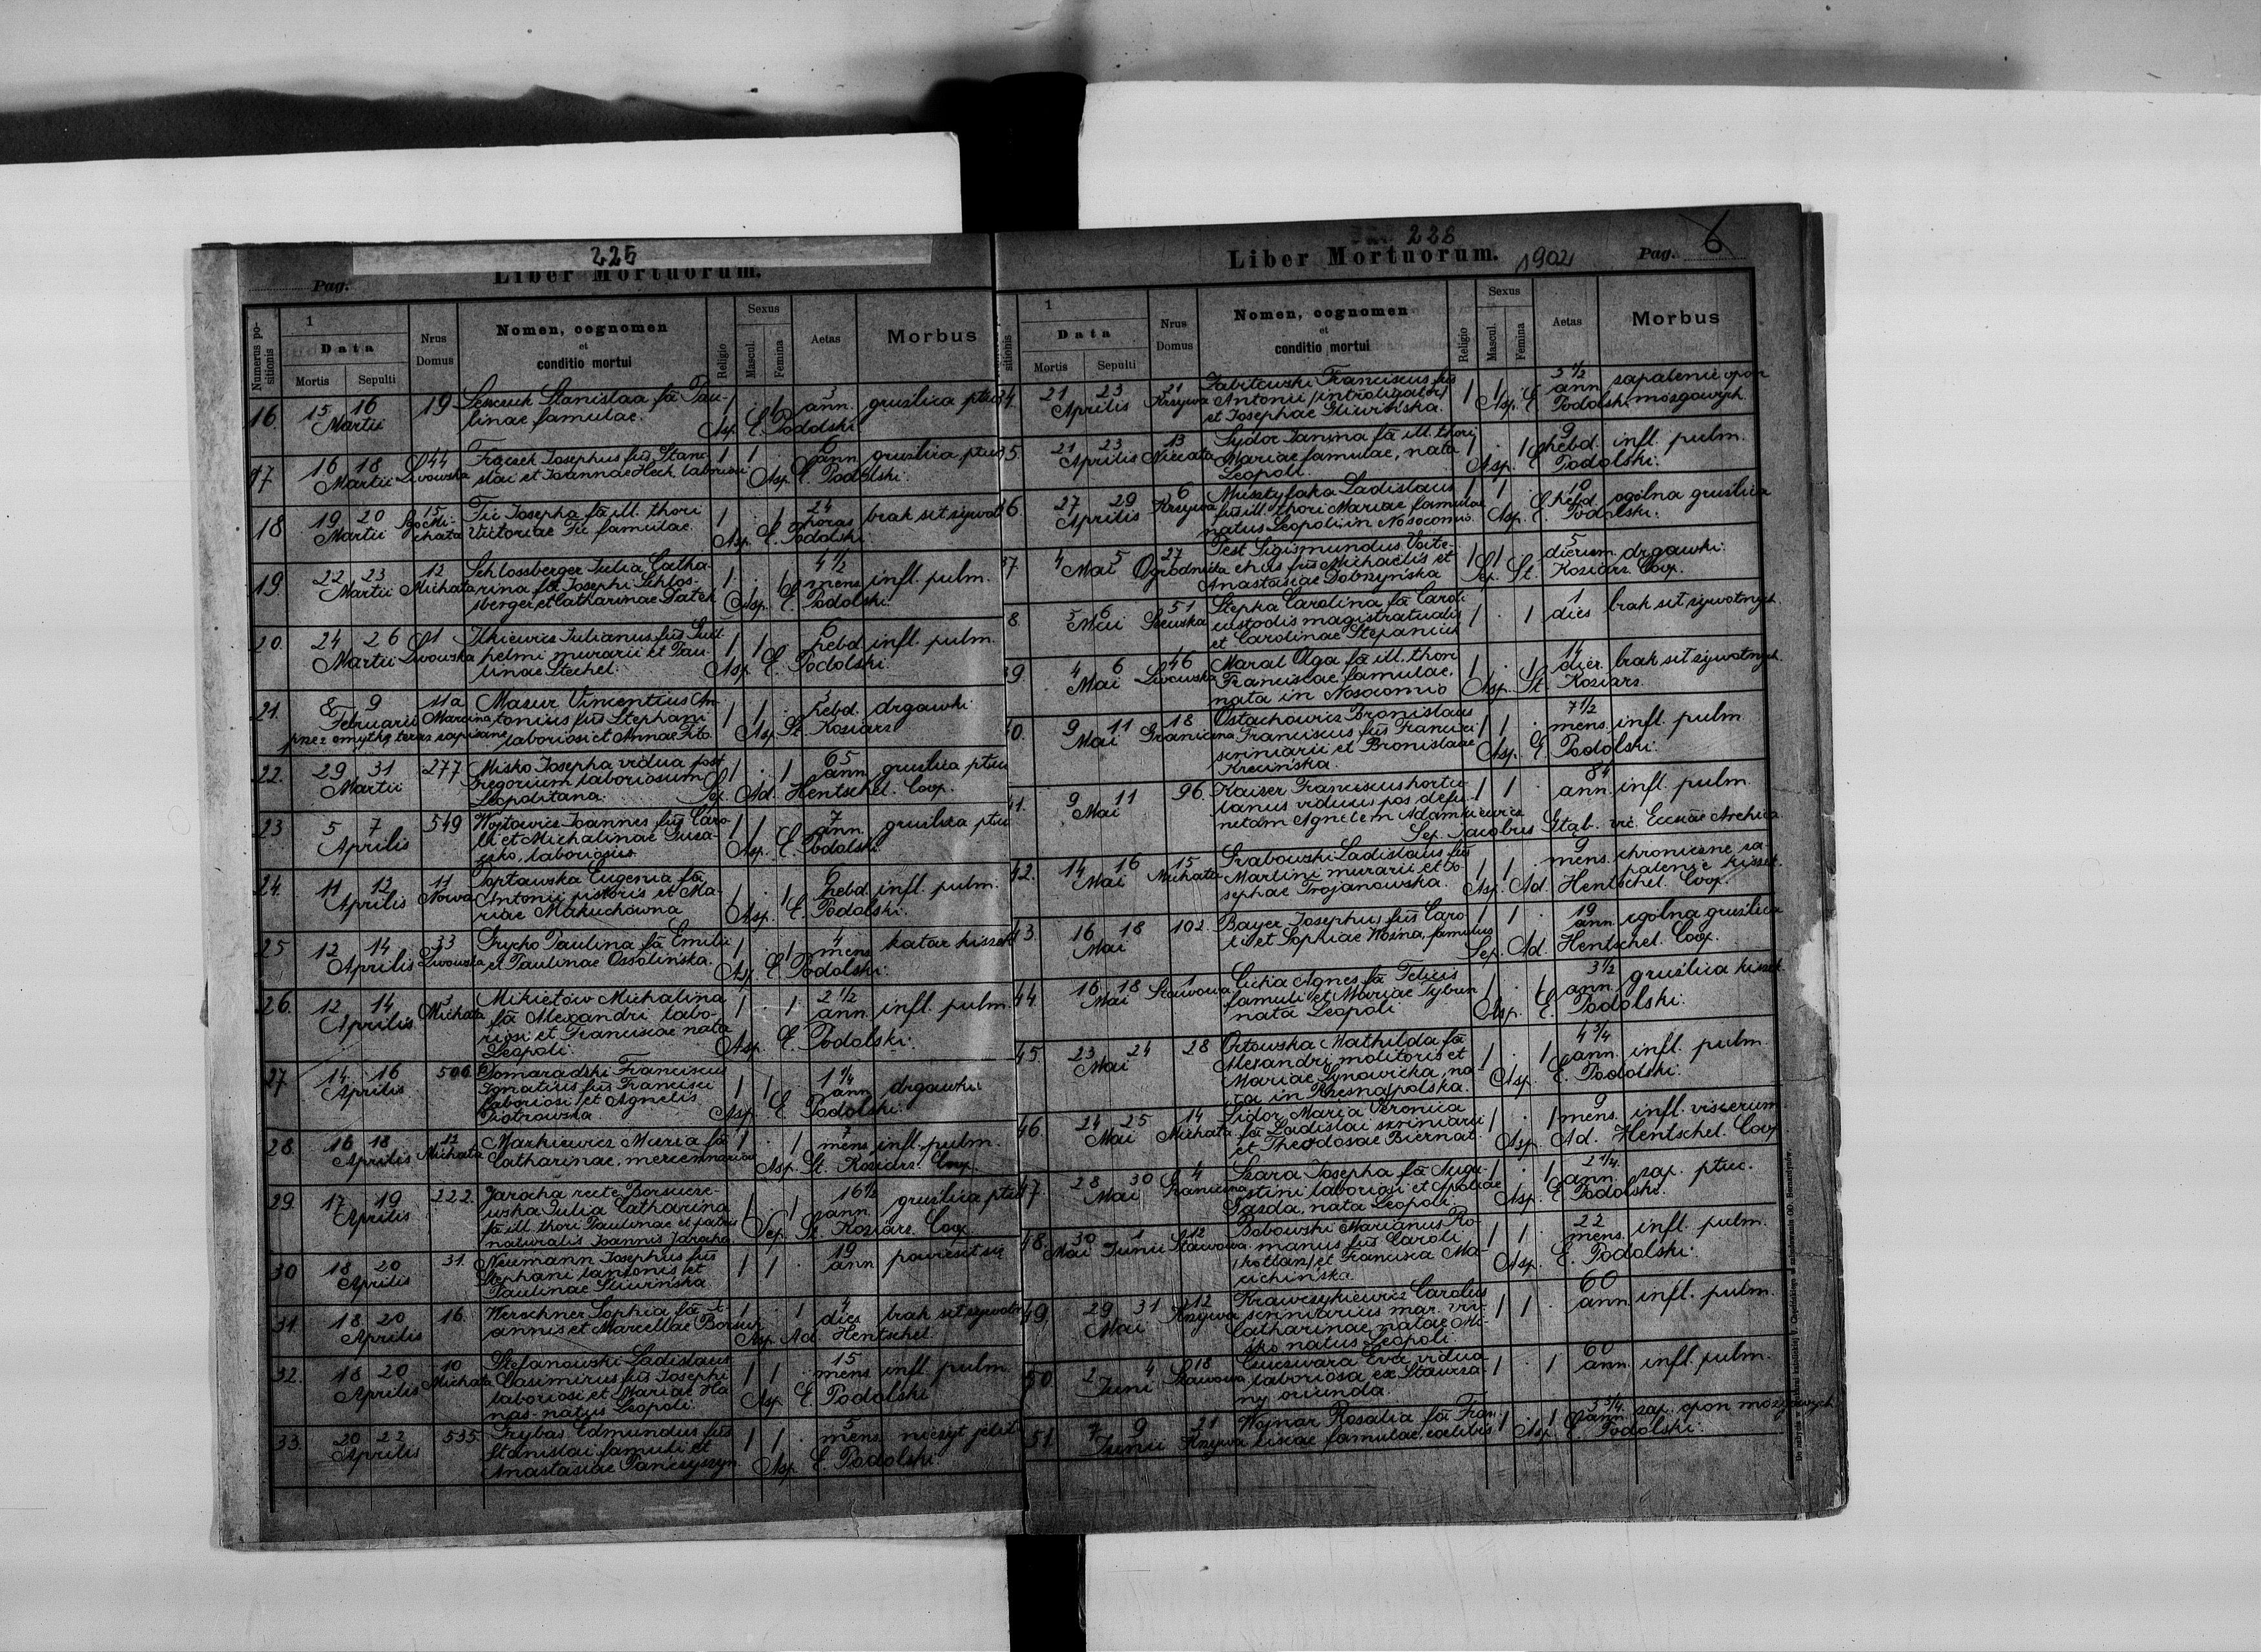 225
Liber Mortuorum.
Pag.
Numerus positionis
1
Data
Mortis
Sepulti
Nrus Domus
Nomen, cognomen
et
conditio mortui
Religio
Sexus
Mascul.
Femina
Aetas
Morbus
16. 15 16 Martii 19 Stanislaa fa Pau-
linae famulae. 1 . 1 3 ann. gruźlica płuc
Asp. E. Podolski
17 16 18 Martii 44 Lwowska Josephus fus Stani-
slai et Joannae Hech laboriosi 1 1 6 ann gruźlica płuc
Asp. E. Podolski.
18 19 20 Martii 15 Josepha fa ill. thori
Victoriae famulae. 1 . 1 24 horas brak sił żywot
Asp. E. Podolski.
19. 22 23 Martii 12 Michała Schlossberger Julia Catha-
rina fa Josephi Schlos-
sberger et Catharinae 1 . 1 4 1/2 mens infl. pulm.
Asp. E. Podolski.
20. 24 26 Martii 81 Lwowska Julianus fus Guil-
helmi murarii et Pau-
linae Stechel. 1 1 6 hebd infl. pulm.
Asp. E. Podolski.
21. 8 9 Februarii 11a Marcina Mazur Vincentius An-
tonius fus Stephani
przez omyłkę teraz zapisane laboriosi et Annae 1 1 3 hebd. drgawki
Asp. St. Koziarz
22. 29 31 Martii 277 Misko Josepha vidua post
Gregorium laboriosum
Leopolitana. 1 . 1 65 ann gruźlica płuc
Sep. Ad. Hentschel. Coop.
23 5 7 Aprilis 549 Wojtowicz Joannes fus Caro-
li et Michalinae
laboriosus 1 1 7 ann gruźlica płuc
Asp. E. Podolski.
24. 11 12 Aprilis 11 Nowa Eugenia fa
Antonii pistoris et Ma-
riae Makuchowna 1 . 1 6 hebd infl. pulm.
Asp. E. Podolski.
25 12 14 Aprilis 33 Lwowska Hrycko Paulina fa Emilii
et Paulinae Ossolińska. 1 . 1 4 mens katar kiszek
Asp. E. Podolski.
26. 12 14 Aprilis 3 Michała Mikietów Michalina
fa Alexandri labo-
riosi et Franciscae nata
Leopoli. 1 . 1 2 1/2 ann. infl. pulm.
Asp. E. Podolski.
27 14 16 Aprilis 506 Domaradzki Franciscus
Ignatius fus Francisci
laboriosi et Agnetis
Piotrowska 1 1 1 1/4 ann drgawki
Asp. E. Podolski.
28. 16 18 Aprilis 12 Michała Markiewicz Maria fa
Catharinae, mercennariae 1 . 1 7 mens infl. pulm.
Asp. St. Koziarz. Coop.
29. 17 19 Aprilis 222. Jarocha recte
Julia Catharina
fa ill. thori Paulinae et patris
naturalis Joannis Jarocha 1 1 16 1/2 ann gruźlica płuc
Sep. St. Koziarz. Coop
30 18 20 Aprilis 31. Neumann Josephus fus
Stephani lanionis et
Paulinae Śliwińska 1 1 . 19 ann powiesił się
31. 18 20 Aprilis 16. Werschner Sophia fa Jo-
annis et Marcellae 1 . 1 4 dies brak sił żywotn
Asp. Ad. Hentschel.
32. 18 20 Aprilis 10 Michała Stefanowski Ladislaus
Casimirus fus Josephi
laboriosi et Mariae Ha
nas natus Leopoli. 1 1 15 mens infl. pulm.
Asp. E. Podolski
33. 20 22 Aprilis 535. Grybas Edmundus fus
Stanislai famuli et
Anastasiae Panczyszyn 1 1 . 5 mens nieżyt jelit
Asp. E. Podolski
226
Liber Mortuorum.
1902
Pag. 6
sitionis
1
Data
Mortis
Sepulti
Nrus Domus
Nomen, cognomen
et
conditio mortui
Religio
Sexus
Mascul.
Femina
Aetas
Morbus
34. 21 23 Aprilis 21 Krzywa Franciscus fus
Antonii /introligator/
et Josephae Gliwińska. 1 1 3 1/2 ann zapalenie opon
mózgowych.
Asp. E. Podolski
35. 21 23 Aprilis 13 Sydor Janina fa ill. thori
Mariae famulae, nata
Leopoli. 1 . 1 9 hebd. infl. pulm.
Asp. E. Podolski.
36. 27 29 Aprilis 6 Krzywa Ladislaus
fus ill. thori Mariae famulae
natus Leopoli in Nosocomio. 1 1 10 hebd ogólna gruźlica
Asp. E. Podolski.
37. 4 5 Mai 27 Ogrodnicka Pest Sigismundus
fus Michaelis et
Anastasiae Dobrzyńska 1 1 . 5 dierum drgawki.
Sep. St. Koziarz. Coop.
8. 5 6 Mai 51 Stepka Carolina fa Caroli
custodis magistratualis
et Carolinae 1 . 1 1 dies brak sił żywotnych.
39. 4 6 Mai 46 Lwowska Maral Olga fa ill. thori
Franciscae famulae.
nata in Nosocomio 1 . 1 14 dier. brak sił żywotnych.
Asp. St. Koziarz.
40. 9 11 Mai 18 Graniczna Ostachowicz Bronislaus
Franciscus fus Francisci
scriniarii et Bronislaae 1 1 . 7 1/2 mens. infl. pulm.
Asp. E. Podolski.
41. 9 11 Mai 96. Kaiser Franciscus hortu-
lanus viduus pos. defu-
nctam Agnetem Adamkiewicz 1 1 . 84 ann. infl. pulm.
Sep. Jacobus Głąb. vic. Ecclae Archica
42. 14 16 Mai 15 Michała Grabowski Ladislaus fus
Martini murarii et Jo-
sephae Trojanowska. 1 1 . 9 mens. chroniczne za-
palenie kiszek.
Asp. Ad. Hentschel. Coop.
43. 16 18 Mai 102. Bayer Josephus fus Caro-
li et Sophiae famulus 1 1 . 19 ann ogólna gruźlica
Sep. Ad. Hentschel. Coop.
44. 16 18 Mai 1 Stawowa Agnes fa Felicis
famuli et Mariae
nata Leopoli 1 . 1 3 1/2 ann. gruźlica kiszek
Asp. E. Podolski.
45. 23 24 Mai 28 Orłowska Mathilda fa
Alexandri molitoris et
Mariae Synowicka, na-
ta in Rzesna polska. 1 . 1 4 3/4 ann. infl. pulm.
Asp. E. Podolski.
46. 24 25 Mai 14 Michała Sidor Maria Veronica
fa Ladislai scriniarii
et Theodosae Biernat. 1 . 1 9 mens. infl. viscerum
Asp. Ad. Hentschel. Coop
47. 28 30 Mai 4 Graniczna Szara Josepha fa Augu-
stini laboriosi et
nata Leopoli. 1 . 1 2 1/4 ann. zap. płuc.
Asp. E. Podolski.
48. 30 Mai 1 Junii 12 Stawowa Bobowski Marianus Ro-
manus fus Caroli
et Francisca 1 1 22 mens. infl. pulm.
Asp. E. Podolski.
49. 29 31 Mai 12 Krzywa Krawczykiewicz Carolus
scriniarius mar.
Catharinae natae Mi-
sko natus Leopoli. 1 1 . 60 ann infl. pulm.
50 2 4 Juni 18 Stawowa Eva vidua
laboriosa ex
oriunda. 1 . 1 60 ann. infl. pulm.
51 7 9 Junii 21 Krzywa Wojnar Rosalia fa Fran-
ciscae famulae caelibis 1 . 1 3 3/4 ann. zap. opon mózgowych
Asp. E. Podolski.